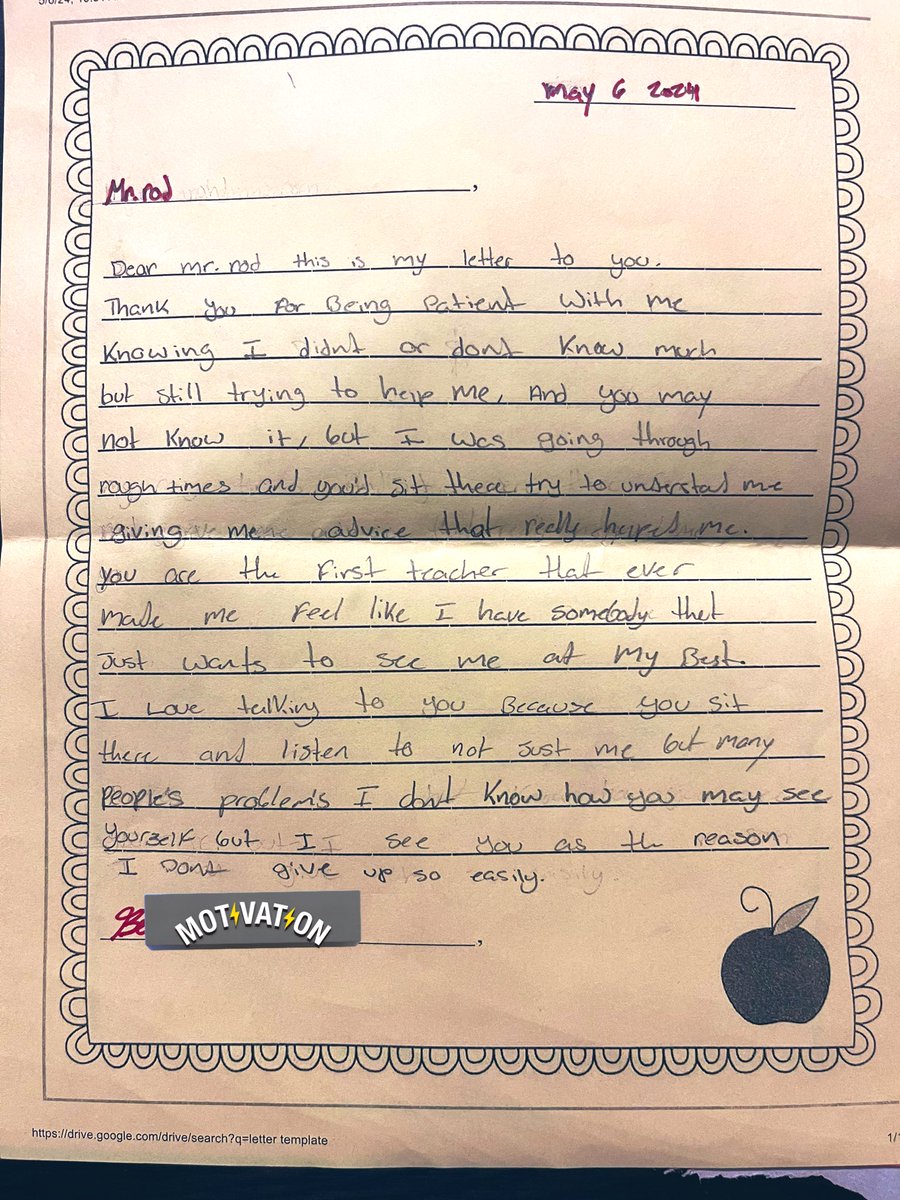 may 6 2024
Mr. rod ,
Dear mr. rod this is my letter to you.
Thank you for Being Patient With me
Knowing I didnt or dont Know much
but still trying to help me, And you may
not know it, but I was going through
rough times and you'd sit there try to understad me
giving me advice that really helped me.
you are the First teacher that ever
made me Feel like I have somebody that
Just wants to see me at My Best.
I Love talking to you Because you sit
there and listen to not Just me but many
People's problem's I dont Know how you may see
yourself but I see you as the reason
I Dont give up so easily.
MOTIVATION
https://drive.google.com/drive/search?q=letter template